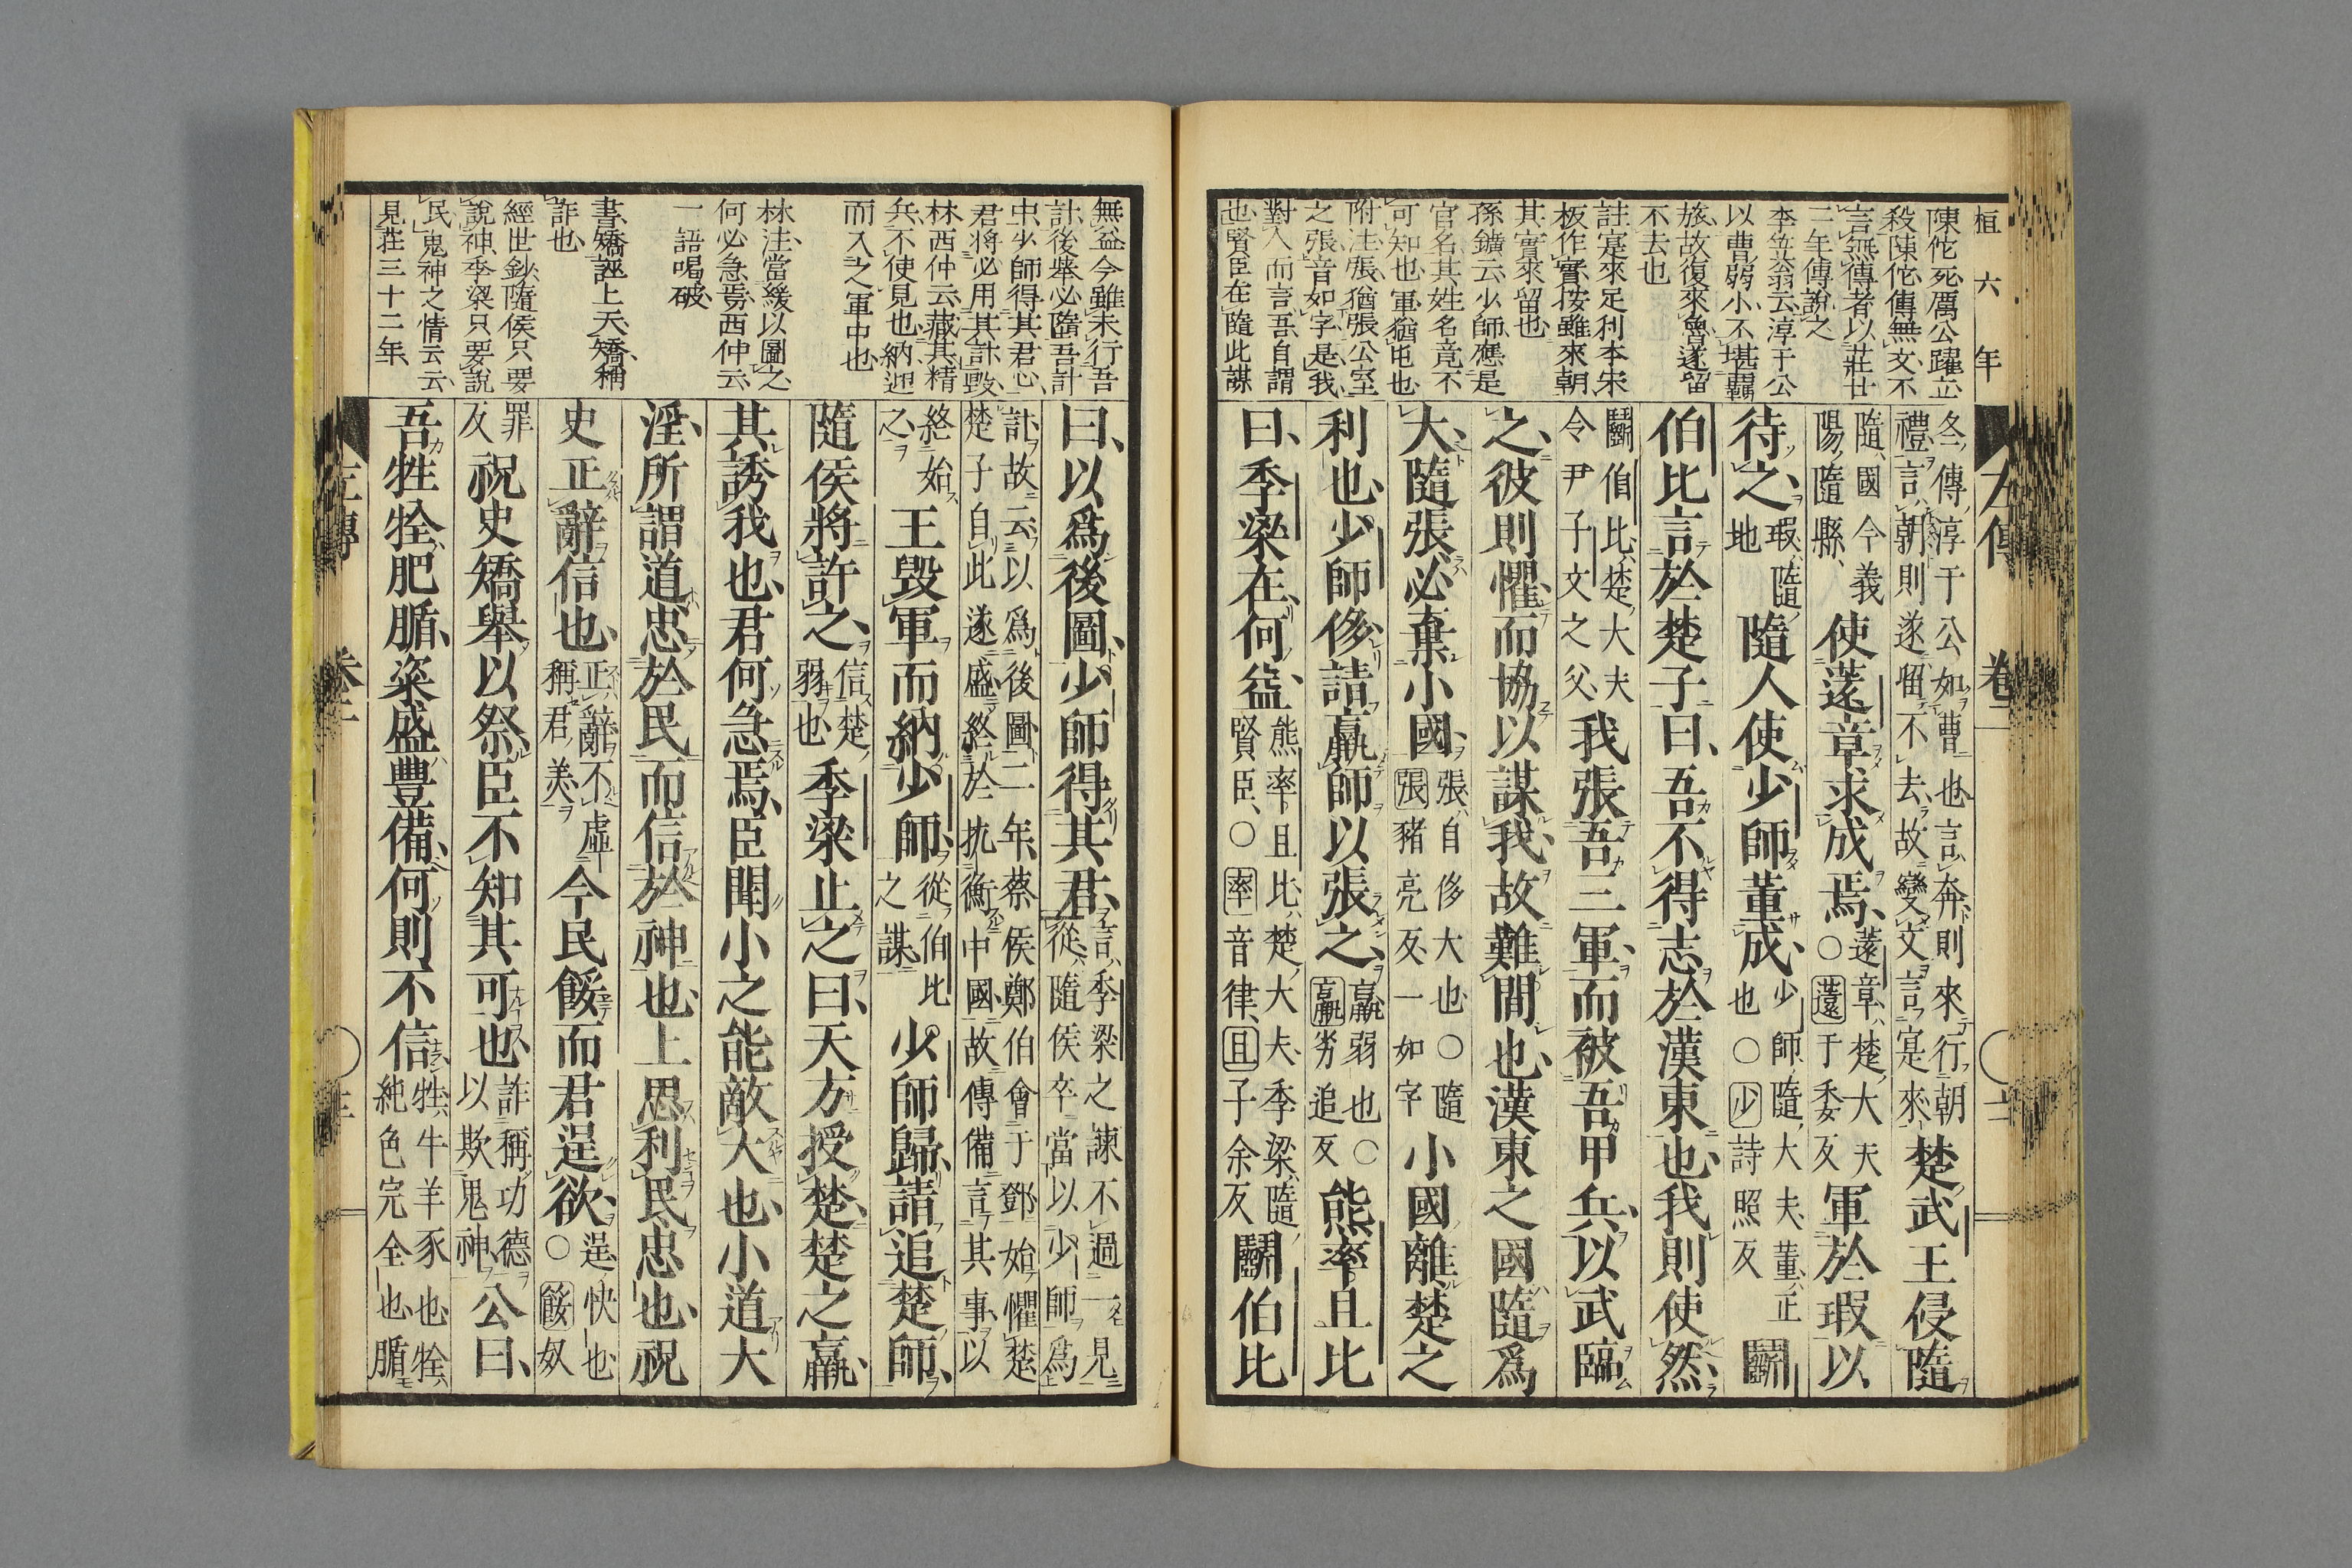 桓六年
陳佗死厲公躍立
殺陳佗傳無文不
言無傳者以莊廿
二年傳說之
李笠翁云淳于公
以曹弱小不堪羈
旅故復來魯遂留
不去也
註寔來足利本宋
板作實按雖來朝
其實來留也
孫鑛云少師應是
官名其姓名竟不
可知也軍猶屯也
附注張猶張公室
之張音如字是我
對人而言吾自謂
也賢臣在隨此謀
左傳 卷二
冬傳淳于公如曹也言奔則來行朝
禮言朝則遂留不去故變文言寔來
楚武王侵隨
隨國今義
陽隨縣
使薳章求成焉
○薳章楚大夫
薳于委反
軍於瑕以
待之
瑕隨
地
隨人使少師董成
少師隨大夫董正
也○少詩照反
鬬
伯比言於楚子曰吾不得志於漢東也我則使然
鬬伯比楚大夫
令尹子文之父
我張吾三軍而被吾甲兵以武臨
之彼則懼而協以謀我故難間也漢東之國隨爲
大隨張必棄小國
張自侈大也○隨
張豬亮反一如字
小國離楚之
利也少師侈請羸師以張之
羸弱也○
羸劣追反
熊率且比
曰季梁在何益
熊率且比楚大夫季梁隨
賢臣○率音律且子余反
鬬伯比
無益今雖未行吾
計後舉必隨吾計
中少師得其君心
君將必用其計毀
林西仲云藏其精
兵不使見也納迎
而入之軍中也
林注當緩以圖之
何必急焉西仲云
一語喝破
書矯誣上天矯稱
詐也
經世鈔隨侯只要
說神季梁只要說
民鬼神之情云云
見莊三十二年
曰以爲後圖少師得其君
言季梁之諫不過一見
從隨侯卒當以少師爲
計故云以爲後圖二年蔡侯鄭伯會于鄧始懼楚
楚子自此遂盛終於抗衡中國故傳備言其事以
終始
之
王毀軍而納少師
從伯比
之謀
少師歸請追楚師
隨侯將許之
信楚
弱也
季梁止之曰天方授楚楚之羸
其誘我也君何急焉臣聞小之能敵大也小道大
淫所謂道忠於民而信於神也上思利民忠也祝
史正辭信也
正辭不虛
稱君美
今民餒而君逞欲
逞快也
○餒奴
罪
反
祝史矯舉以祭臣不知其可也
詐稱功德
以欺鬼神
公曰
吾牲牷肥腯粢盛豐備何則不信
牲牛羊豕也牷
純色完全也腯
左傳 卷二 三